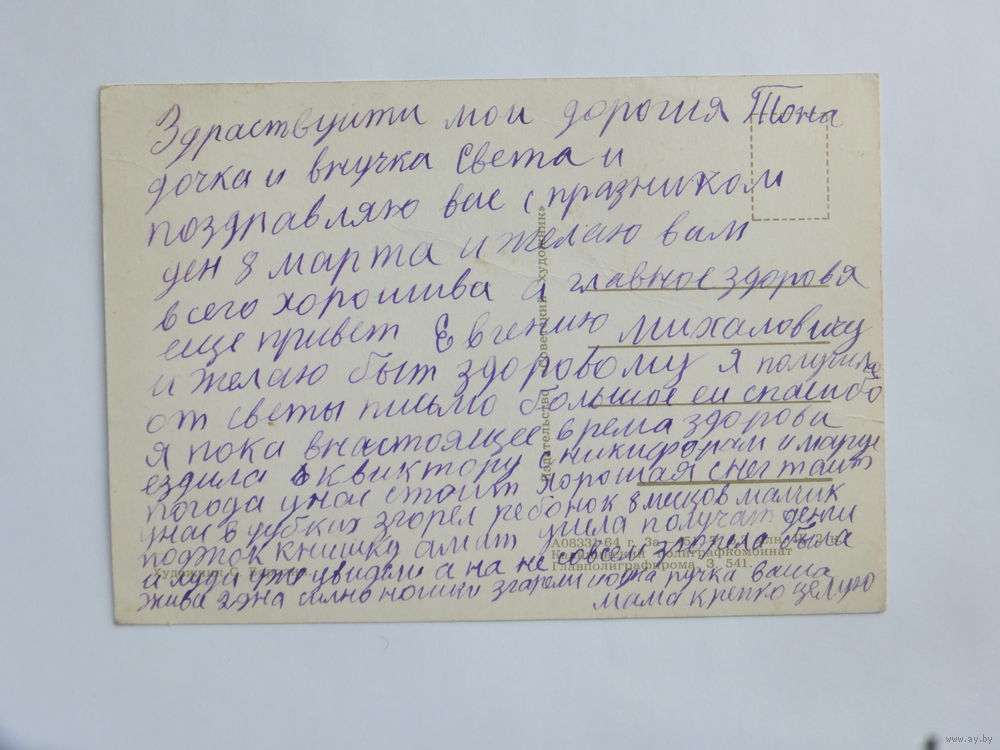 Здраствуити мои дорогия Тоня
дочка и внучка Света и
поздравляю вас с празником
ден 8 марта и желаю вам
всего хорошива а главное здоровя
еще привет Евгению Михаловичу
и желаю быт здоровому я получила
от светы писмо большое ей спасибо
я пока внастоящее время здорова
ездила к виктору
погода унас стоит хорошая снег таит
унас в згорел ребонок 8 мисцов малчик
подток книшку а мат ушла получат денги
и люди уже увидели а на не совсем была
жива згорели ваша
мама крепко целую
издательство «советский художник»
А08331 64 г.
полиграфкомбинат
Главполиграфпрома. З. 541.
Художник С.
www.ay.by